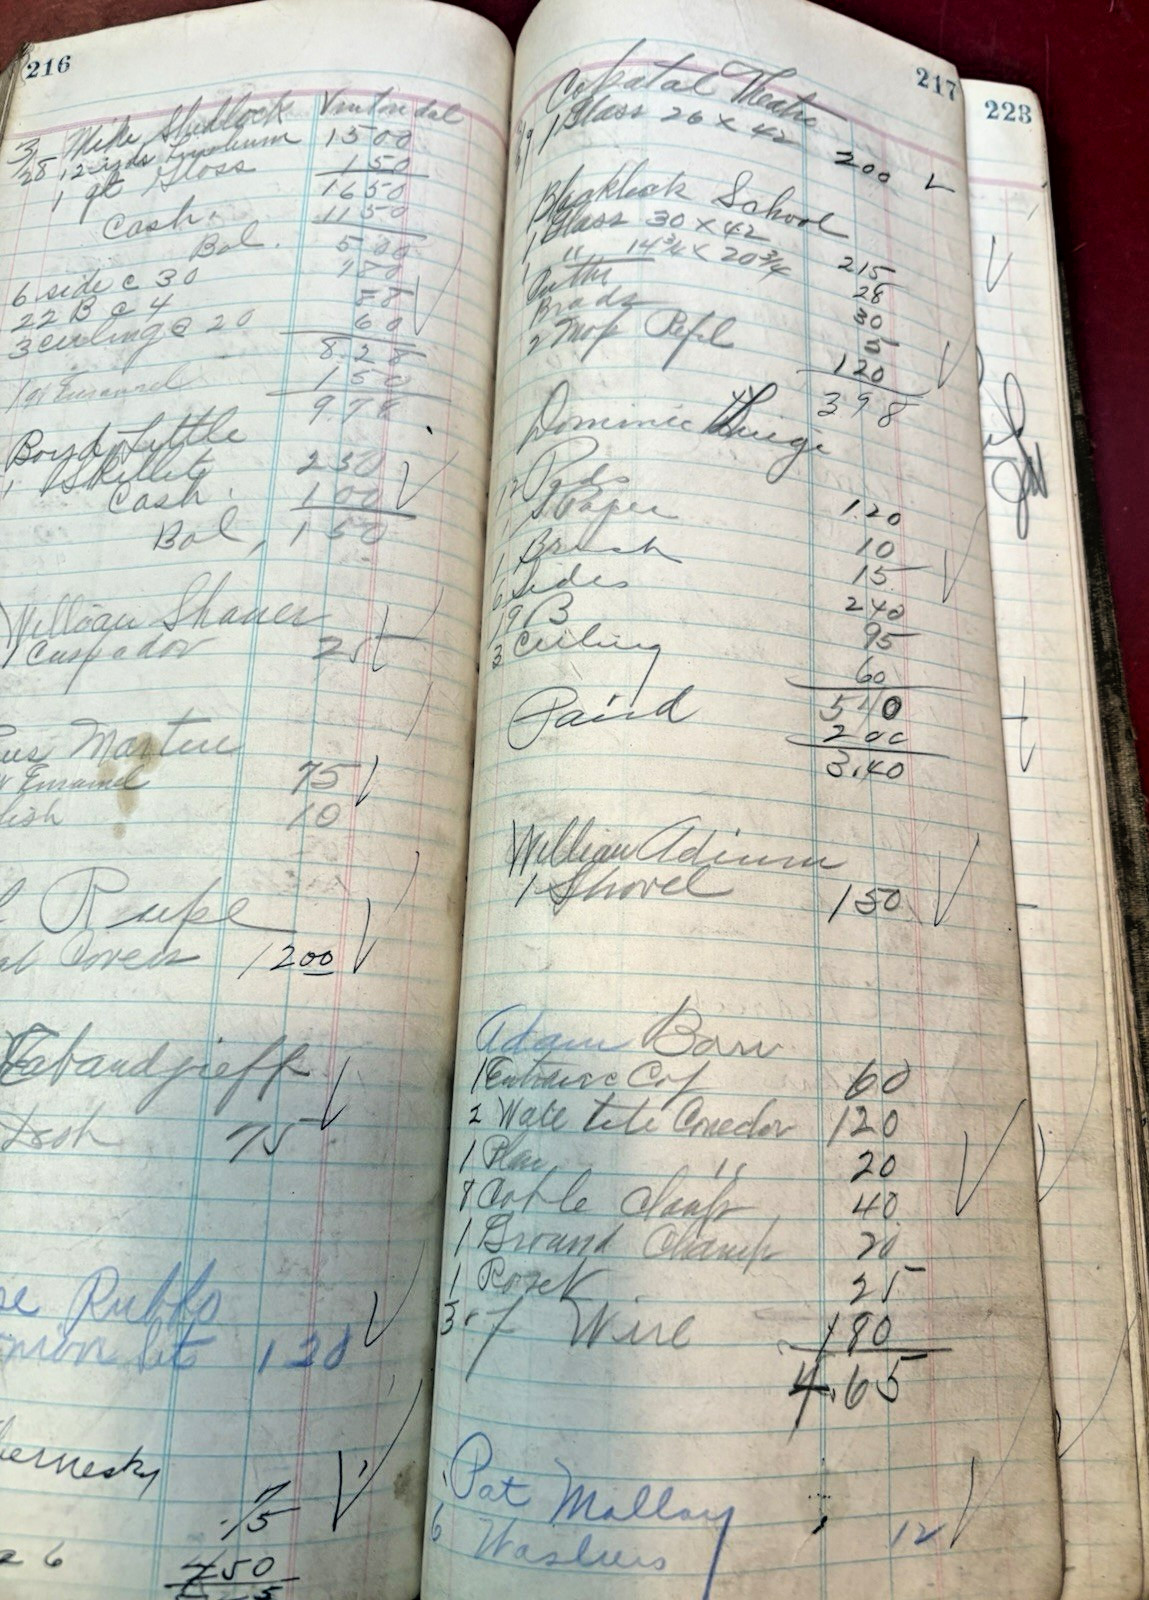 216
Mike Shedlock Vintondal
3/28 12 yds Linoleum 1500
1 qt Gloss 150
1650
Cash. 1150
Bal. 500
6 side c 30 180
22 B c 4 88
3 ceiling @ 20 60
8.28
1 qt Enamel 150
978
Boyd Little
1 Skillet 250
Cash. 100
Bal, 150
William Shaner
1 Cuspador 25
Martin
Enamel 75
10
Rupe
Covers 1200
75
Rubko
120
ernesky
75
26 450
217
Capatal Theatre
1 Glass 26 x 42 200
Blacklick School
1 Glass 30 x 42 215
1 " 14¾ x 20¾ 28
Putti 30
Brads 5
2 Mop Refil 120
398
Dominic
12 Rds 120
1 S Paper 10
1 Brush 15
6 Sides 240
19 B 95
3 Ceiling 60
540
Paird 200
3.40
William
1 Shovel 150
Adam Barr
1 Entrance Cap 60
2 Wate tite Conector 120
1 Plain " 20
8 Cable Clamps 40
1 Ground Clamp 20
1 Rozet 25
Wire 180
4.65
Pat Mallay
6 Washers 12
223